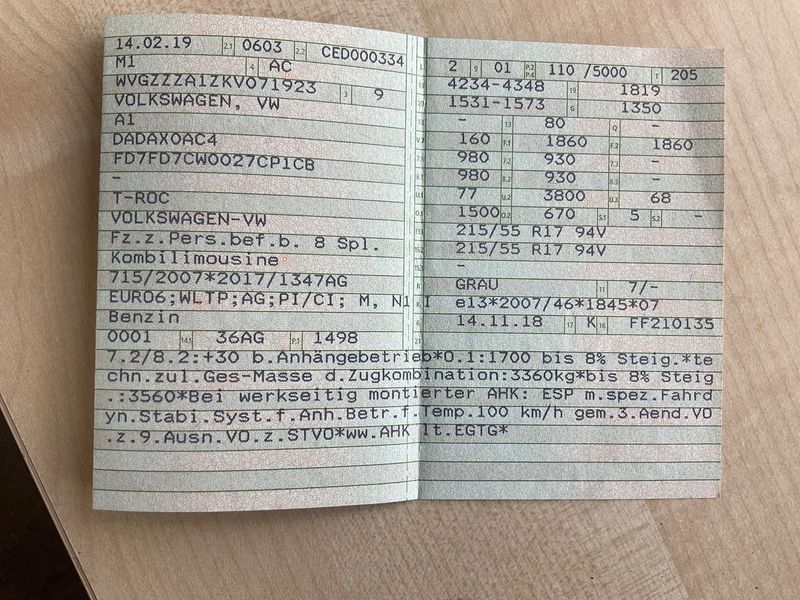 14.02.19 2.1 0603 2.2 CED000334
M1 4 AC
WVGZZZA1ZKV071923 3 9
VOLKSWAGEN, VW
A1
DADAX0AC4
FD7FD7CW0027CP1CB
-
T-ROC
VOLKSWAGEN-VW
Fz.z.Pers.bef.b. 8 Spl.
Kombilimousine
715/2007*2017/1347AG
EURO6;WLTP;AG;PI/CI; M, N1 I
Benzin
0001 14.1 36AG P.1 1498
L 2 9 01 P.2 P.4 110 /5000 T 205
18 4234-4348 19 1819
20 1531-1573 G 1350
- 13 80 Q -
V.7 160 F.1 1860 F.2 1860
7.1 980 7.2 930 7.3 -
8.1 980 8.2 930 8.3 -
U.1 77 U.2 3800 U.3 68
O.1 1500 O.2 670 S.1 5 S.2 -
15.1 215/55 R17 94V
15.2 215/55 R17 94V
15.3 -
R GRAU 11 7/-
K e13*2007/46*1845*07
6 14.11.18 17 K 16 FF210135
21
7.2/8.2:+30 b.Anhängebetrieb*O.1:1700 bis 8% Steig.*te
chn.zul.Ges-Masse d.Zugkombination:3360kg*bis 8% Steig
.:3560*Bei werkseitig montierter AHK: ESP m.spez.Fahrd
yn.Stabi.Syst.f.Anh.Betr.f.Temp.100 km/h gem.3.Aend.VO
.z.9.Ausn.VO.z.STVO*ww.AHK lt.EGTG*